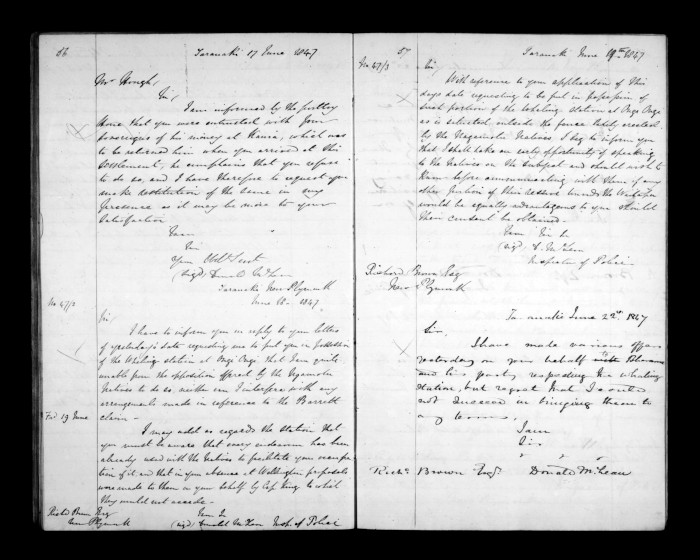 56
Taranaki 17 June 1847
Mr Hough,
Sir,
I am informed by the
that you were entrusted with four
sovereigns of his money at Kawia, which was
to be returned him when you arrived at this
Settlement; he complains that you refuse
to do so, and I have therefore to request you
make restitution of the same in my
presence as it may be more to your
satisfaction
I am
Sir
Your Obt Servt
(Sigd) Donald McLean
Taranaki New Plymouth
June 18 1847
No 47/2
Sir,
I have to inform you in reply to your letters
of yesterday's date requesting me to put you in possession
of the Whaling station at Ongi Ongi that I am quite
unable from the opposition offered by the Ngamotu
Natives to do so, neither can I interfere with any
arrangements made in reference to the Barrett
claim -
Fri 19 June
I may add as regards the station that
you must be aware that every endeavour has been
already used with the Natives to facilitate your occupa-
tion of it and that in your absence at Wellington proposals
were made to them on your behalf by Cap King to which
they would not accede -
Richd Brown Esq
New Plymouth
I am Sir
(sigd) Donald McLean Insp. of Police
57
Taranaki June 19th 1847
No 47/3
Sir,
With reference to your application of this
days date requesting to be put in possession of
such portion of the whaling station at Ongi Ongi
as is situated outside the fence lately erected
by the Ngamotu Natives I beg to inform you
that I shall take an early opportunity of speaking
to the Natives on the subject and should wish to
know before communicating with them if any
other portion of their reserve towards the Waitara
would be equally advantageous to you should
their consent be obtained -
I am Sir &c
(sigd) D. McLean
Inspector of Police
Richard Brown Esq
New Plymouth
Taranaki June 22nd 1847
Sir,
I have made various offers
yesterday on your behalf
and his party respecting the whaling
station, but regret that I could
not succeed in bringing them to
any terms,
I am
Sir
Richd Brown Esq
Donald McLean